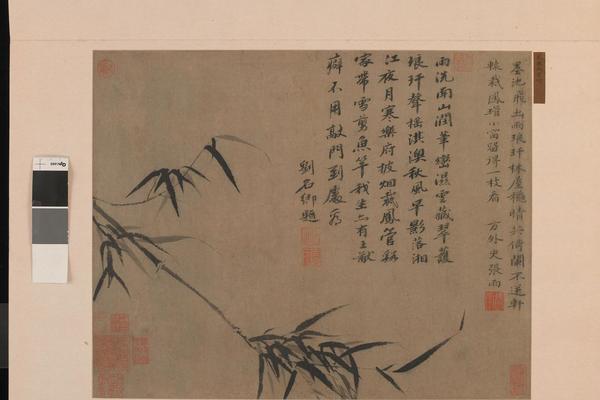 墨池飛出兩琅玕林屋 情共倚闌不逐軒
轅裁鳳琯小窗留得一枝看 方外史張雨
雨洗南山潤華巒濕雲藏翠護
琅玕聲搖淇澳秋風早影落湘
江夜月寒樂府披烟裁鳳管谿
家帶雪剪魚竿我生亦有王猷
癖不用敲門到處看
劉石卿題